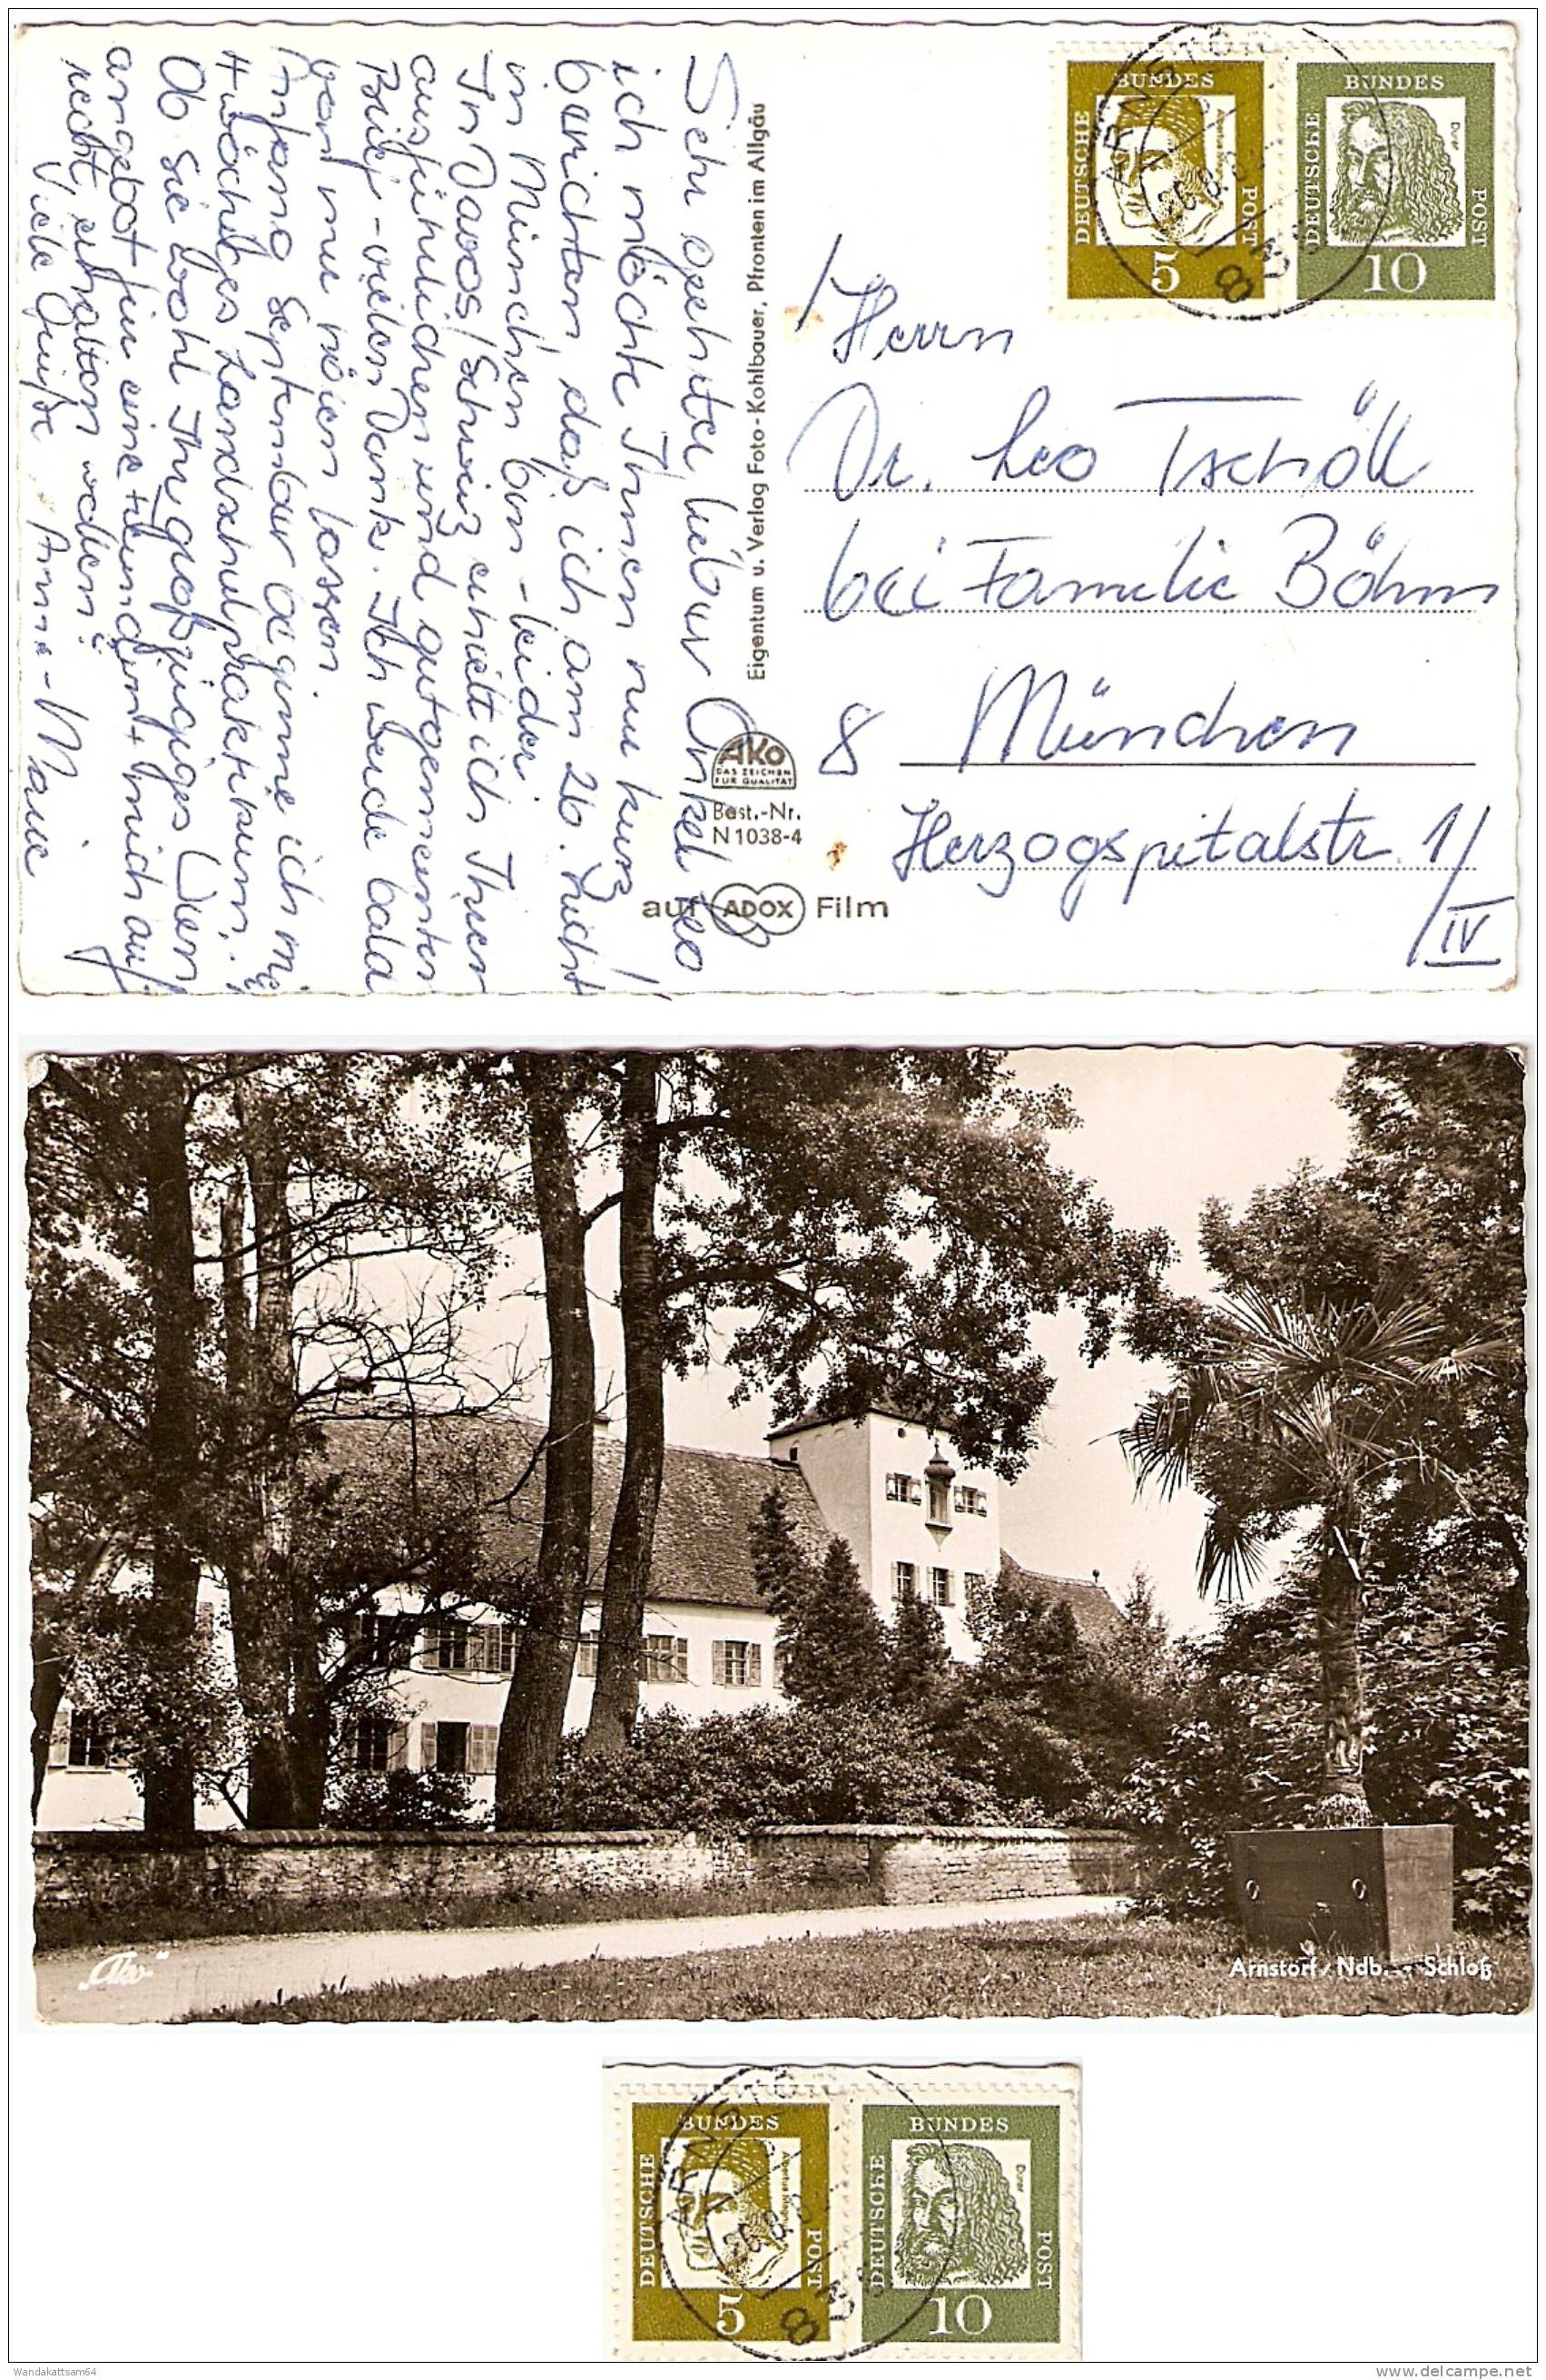 Sehr geehrter lieber Onkel Leo
ich möchte Ihnen nur kurz
berichten, daß ich am 26. nicht
in München bin - leider!
In Davos/Schweiz erhielt ich Ihren
ausführlichen und gutgemeinten
Brief - vielen Dank. Ich werde bald
von mir hören lassen.
Anfang September beginne ich mein
4 wöchiges Landschulpraktikum.
Ob Sie wohl Ihr großzügiges Dien
angebot für eine Freundin + mich auf
recht erhalten wollen?
Viele Grüße Anne-Marie
Eigentum u. Verlag Foto-Kohlbauer, Pfronten im Allgäu
AKO
DAS ZEICHEN
FÜR QUALITÄT
Best.-Nr.
N 1038-4
auf ADOX Film
DEUTSCHE BUNDES POST
Albertus Magnus
5
DEUTSCHE BUNDES POST
Dürer
10
Herrn
Dr. Leo Tschöll
bei Familie Böhm
8 München
Herzogspitalstr. 1/
IV
„Ako“
Arnstorf / Ndb. - Schloß
DEUTSCHE BUNDES POST
Albertus Magnus
5
DEUTSCHE BUNDES POST
Dürer
10
Wandakattsam64
www.delcampe.net